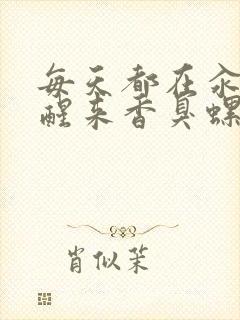 每天都在
醒来香臭螺
肖似茉